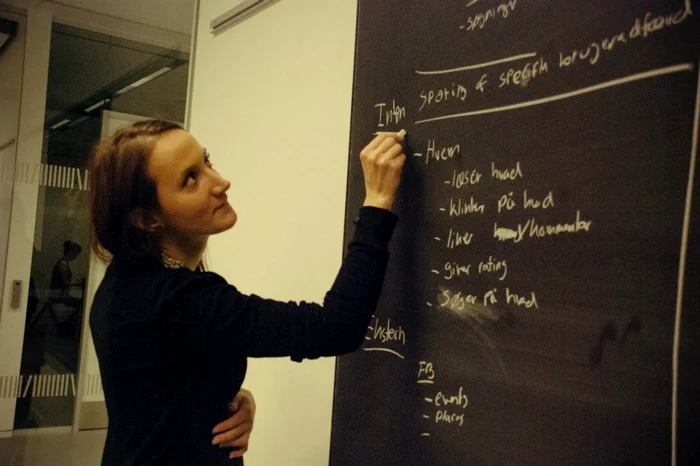 - søgninger
Sporing af specifik brugeradfærd
Intern
- Hvem
- læser hvad
- klikker på hvad
- liker /kommentar
- giver rating
- Søger på hvad
Ekstern
FB
- events
- places
-